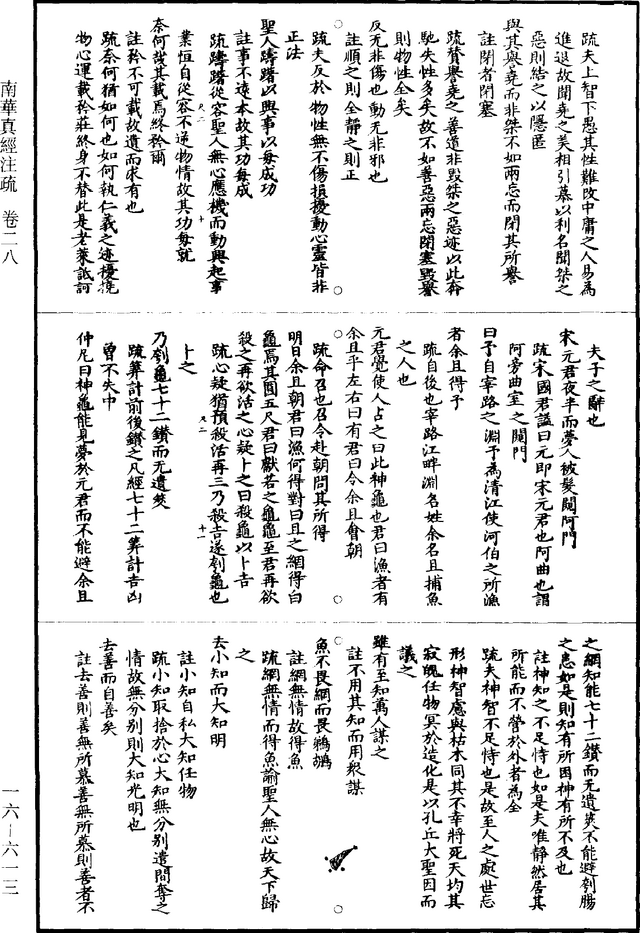 南華真經注疏　卷二八
一六—六一三
疏夫上智下愚其性難改中庸之人易為
進退故聞堯之美相引慕以利名聞桀之
惡則結之以隱匿
與其譽堯而非桀不如兩忘而閉其所譽
註閉者閉塞
疏贊譽堯之善遺非毀桀之惡迹以此奔
馳失性多矣故不如善惡兩忘閉塞毀譽
則物性全矣
反无非傷也動无非邪也
註順之則全靜之則正
疏夫反於物性無不傷損擾動心靈皆非
正法
聖人躊躇以興事以每成功
註事不遠本故其功每成
疏躊躇從容聖人無心應機而動興起事
業恒自從容不逆物情故其功每就
奈何哉其載焉終矜爾
註矜不可載故遺而求有也
疏奈何猶如何也如何執仁義之迹擾撓
物心運載矜莊終身不替此是老萊詆訶
尺二　十
夫子之辭也
宋元君夜半而夢人被髮闚阿門
疏宋國君謚曰元即宋元君也阿曲也謂
阿旁曲室之闚門
曰予自宰路之淵予為清江使河伯之所漁
者余且得予
疏自後也宰路江畔淵名姓余名且捕魚
之人也
元君覺使人占之曰此神龜也君曰漁者有
余且乎左右曰有君曰令余且會朝
疏命召也召令赴朝問其所得
明日余且朝君曰漁何得對曰且之網得白
龜焉其圓五尺君曰獻若之龜龜至君再欲
殺之再欲活之心疑卜之曰殺龜以卜吉
疏心疑猶預殺活再三乃殺吉遂刳龜也
尺二　十一
卜之
乃刳龜七十二鑽而无遺筴
疏筭計前後鑽之凡經七十二筭計吉凶
曾不失中
仲尼曰神龜能見夢於元君而不能避余且
之網知能七十二鑽而无遺筴不能避刳腸
之患如是則知有所困神有所不及也
註神知之不足恃也如是夫唯靜然居其
所能而不營於外者為全
疏夫神智不足恃也是故至人之處世忘
形神智慮與枯木同其不幸將死天均其
寂魄任物冥於造化是以孔丘大聖因而
議之
雖有至知萬人謀之
註不用其知而用衆謀
魚不畏網而畏鵜鶘
註網無情故得魚
疏網無情而得魚喻聖人無心故天下歸
之
去小知而大知明
註小知自私大知任物
疏小知取捨於心大知無分別遣間奪之
情故無分別則大知光明也
去善而自善矣
註去善則善無所慕善無所慕則善者不